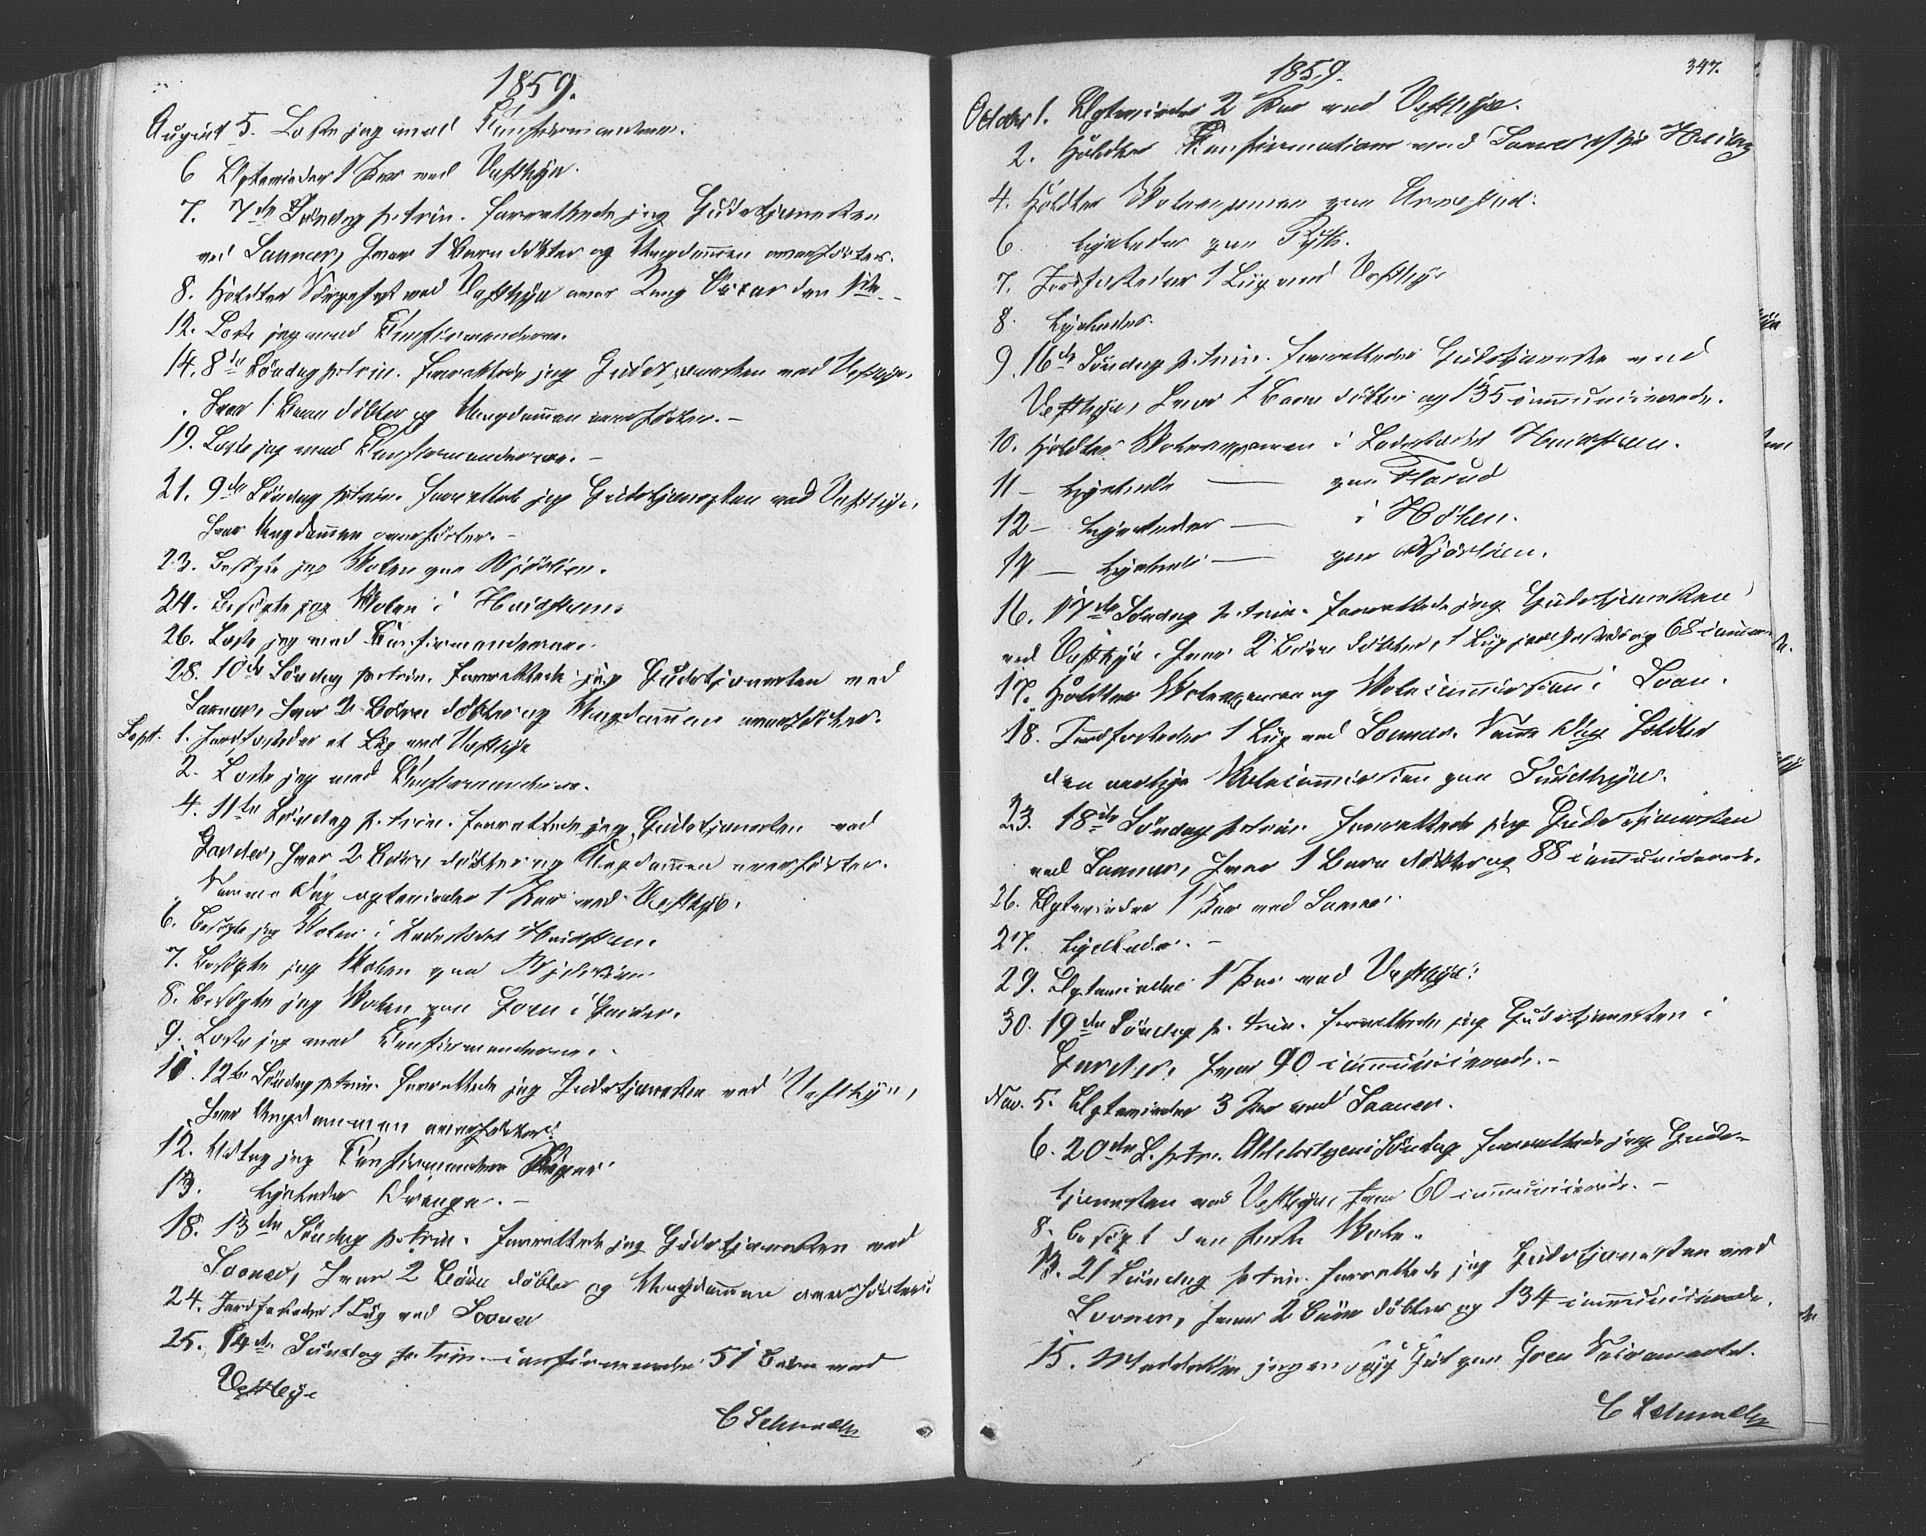 1859.
August 5. Læste jeg med Konfirmanterne.
6 Egteviedes 1 Par ved Vestbye.
7. 7de Søndag p. trin. forrettede jeg Gudstjenesten
ved Saaner, hvor 1 Barn døbtes og Ungdommen overhørtes.
8. Holdtes Sørgefest ved Vestbye over Kong Oscar den 1ste.
12. Læste jeg med Konfirmanderne.
14. 8de Søndag p. trin. forrettede jeg Gudstjenesten ved Vestbye,
hvor 1 Barn døbtes og Ungdommen overhørtes. –
19. Læste jeg med Konfirmanderne. –
21. 9de Søndag p. trin. forrettede jeg Gudstjenesten ved Vestbye,
hvor Ungdommen overhørtes. –
23. Besøgte jeg Skolen paa
24. Besøgte jeg Skolen i
26. Læste jeg med Konfirmanderne.
28. 10de Søndag p. trin. forrettede jeg Gudstjenesten ved
Saaner, hvor 2 Børn døbtes og Ungdommen overhørtes.
Sept. 1. Jordfæstedes et Liig ved Vestbye
2. Læste jeg med Konfirmanderne.
4. 11te Søndag p. trin. forrettede jeg Gudstjenesten ved
Garder, hvor 2 Børn døbtes og Ungdommen overhørtes.
Samme Dag egteviedes 1 Par ved Vestbye.
6. Besøgte jeg Skolen i Ladestedet
7. Besøgte jeg Skolen paa
8. Besøgte jeg Skolen paa i Garder.
9. Læste jeg med Konfirmanderne.
11. 12te Søndag p. trin. forrettede jeg Gudstjenesten ved Vestbye,
hvor Ungdommen overhørtes.
12. jeg Konfirmanderne Piger.
13. Ligeledes Drenge. –
18. 13de Søndag p. trin. forrettede jeg Gudstjenesten ved
Saaner, hvor 2 Børn døbtes og Ungdommen overhørtes.
24. Jordfæstedes 1 Liig ved Saaner
25. 14de Søndag p. trin. confirmerede 51 Børn ved
Vestbye
C Schmidt
1859.
347.
October 1. Egteviedes 2 Par ved Vestbye.
2. Holdtes Konfirmation ved Saaner
4. Holdtes Skoleexamen paa
6. Ligeledes paa
7. Jordfæstedes 1 Liig ved Vestby
8. Ligeledes.
9. 16de Søndag p. trin. forrettedes Gudstjeneste ved
Vestbye, hvor 1 Barn døbtes og 135 communicerede.
10. Holdtes Skoleexamen i Ladestedet
11 – Ligeledes — paa
12 – Ligeledes — i
14 – Ligeledes — paa
16. 17de Søndag p. trin. forrettede jeg Gudstjenesten
ved Vestbye. hvor 2 Børn døbtes, 1 Liig jordfæstedes og 68
17. Holdtes Skoleexamen og Skolecommission i Soon.
18. Jordfæstedes 1 Liig ved Saaner. Samme Dag holdtes
den aarlige Skolecommission paa
23. 18de Søndag p. trin. forrettede jeg Gudstjenesten
ved Saaner, hvor 1 Barn døbtes og 88 communicerede.
26. Egteviedes 1 Par ved Saaner
27. Ligeledes. –
29. Egteviedes 1 Par ved Vestbye.
30. 19de Søndag p. trin. forrettede jeg Gudstjenesten i
Garder, hvor 90 communicerede. –
Nov. 5. Egteviedes 3 Par ved Saaner.
6. 20de S. p. tr. Allehelgens Søndag forrettede jeg Guds-
tjenesten ved Vestbye, hvor 60 communicerede. –
8. Besøgt den faste Skole.
13. 21 Søndag p. trin. forrettede jeg Gudstjenesten ved
Saaner, hvor 2 Børn døbtes og 134 communicerede.
15. Meddeelte jeg en syg paa Sacramentet.
C Schmidt